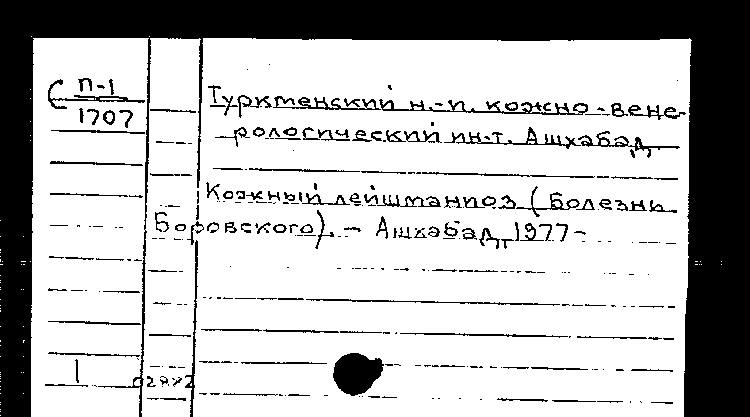 С П-1
1707
Туркменский н.-п. кожно-вене-
рологический ин-т. Ашхабад.
Кожный лейшманиоз (Болезнь
Боровского). - Ашхабад, 1977-
1